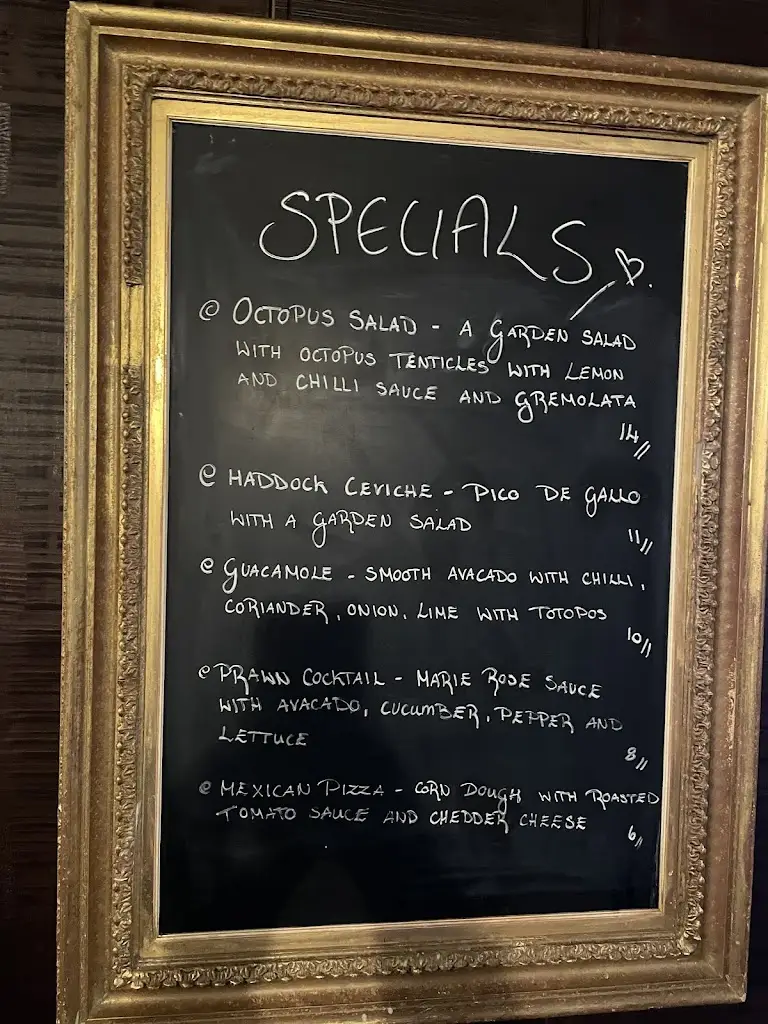 SPECIALS
@ OCTOPUS SALAD - A GARDEN SALAD
WITH OCTOPUS TENTICLES WITH LEMON
AND CHILLI SAUCE AND GREMOLATA
14//
@ HADDOCK CEVICHE - PICO DE GALLO
WITH A GARDEN SALAD
11//
@ GUACAMOLE - SMOOTH AVACADO WITH CHILLI,
CORIANDER, ONION, LIME WITH TOTOPOS
10//
@ PRAWN COCKTAIL - MARIE ROSE SAUCE
WITH AVACADO, CUCUMBER, PEPPER AND
LETTUCE
8//
@ MEXICAN PIZZA - CORN DOUGH WITH ROASTED
TOMATO SAUCE AND CHEDDER CHEESE
6//